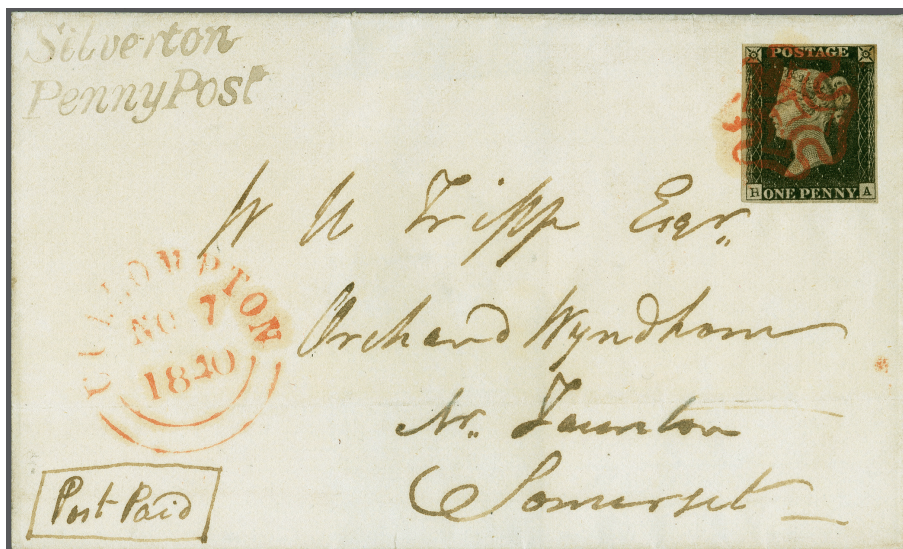 Silverton
Penny Post
POSTAGE
H ONE PENNY A
W U Tripp Esqr.
Orchard Wyndham
Nr. Taunton
Somerset
CULLOMPTON
NO 7
1840
Post Paid